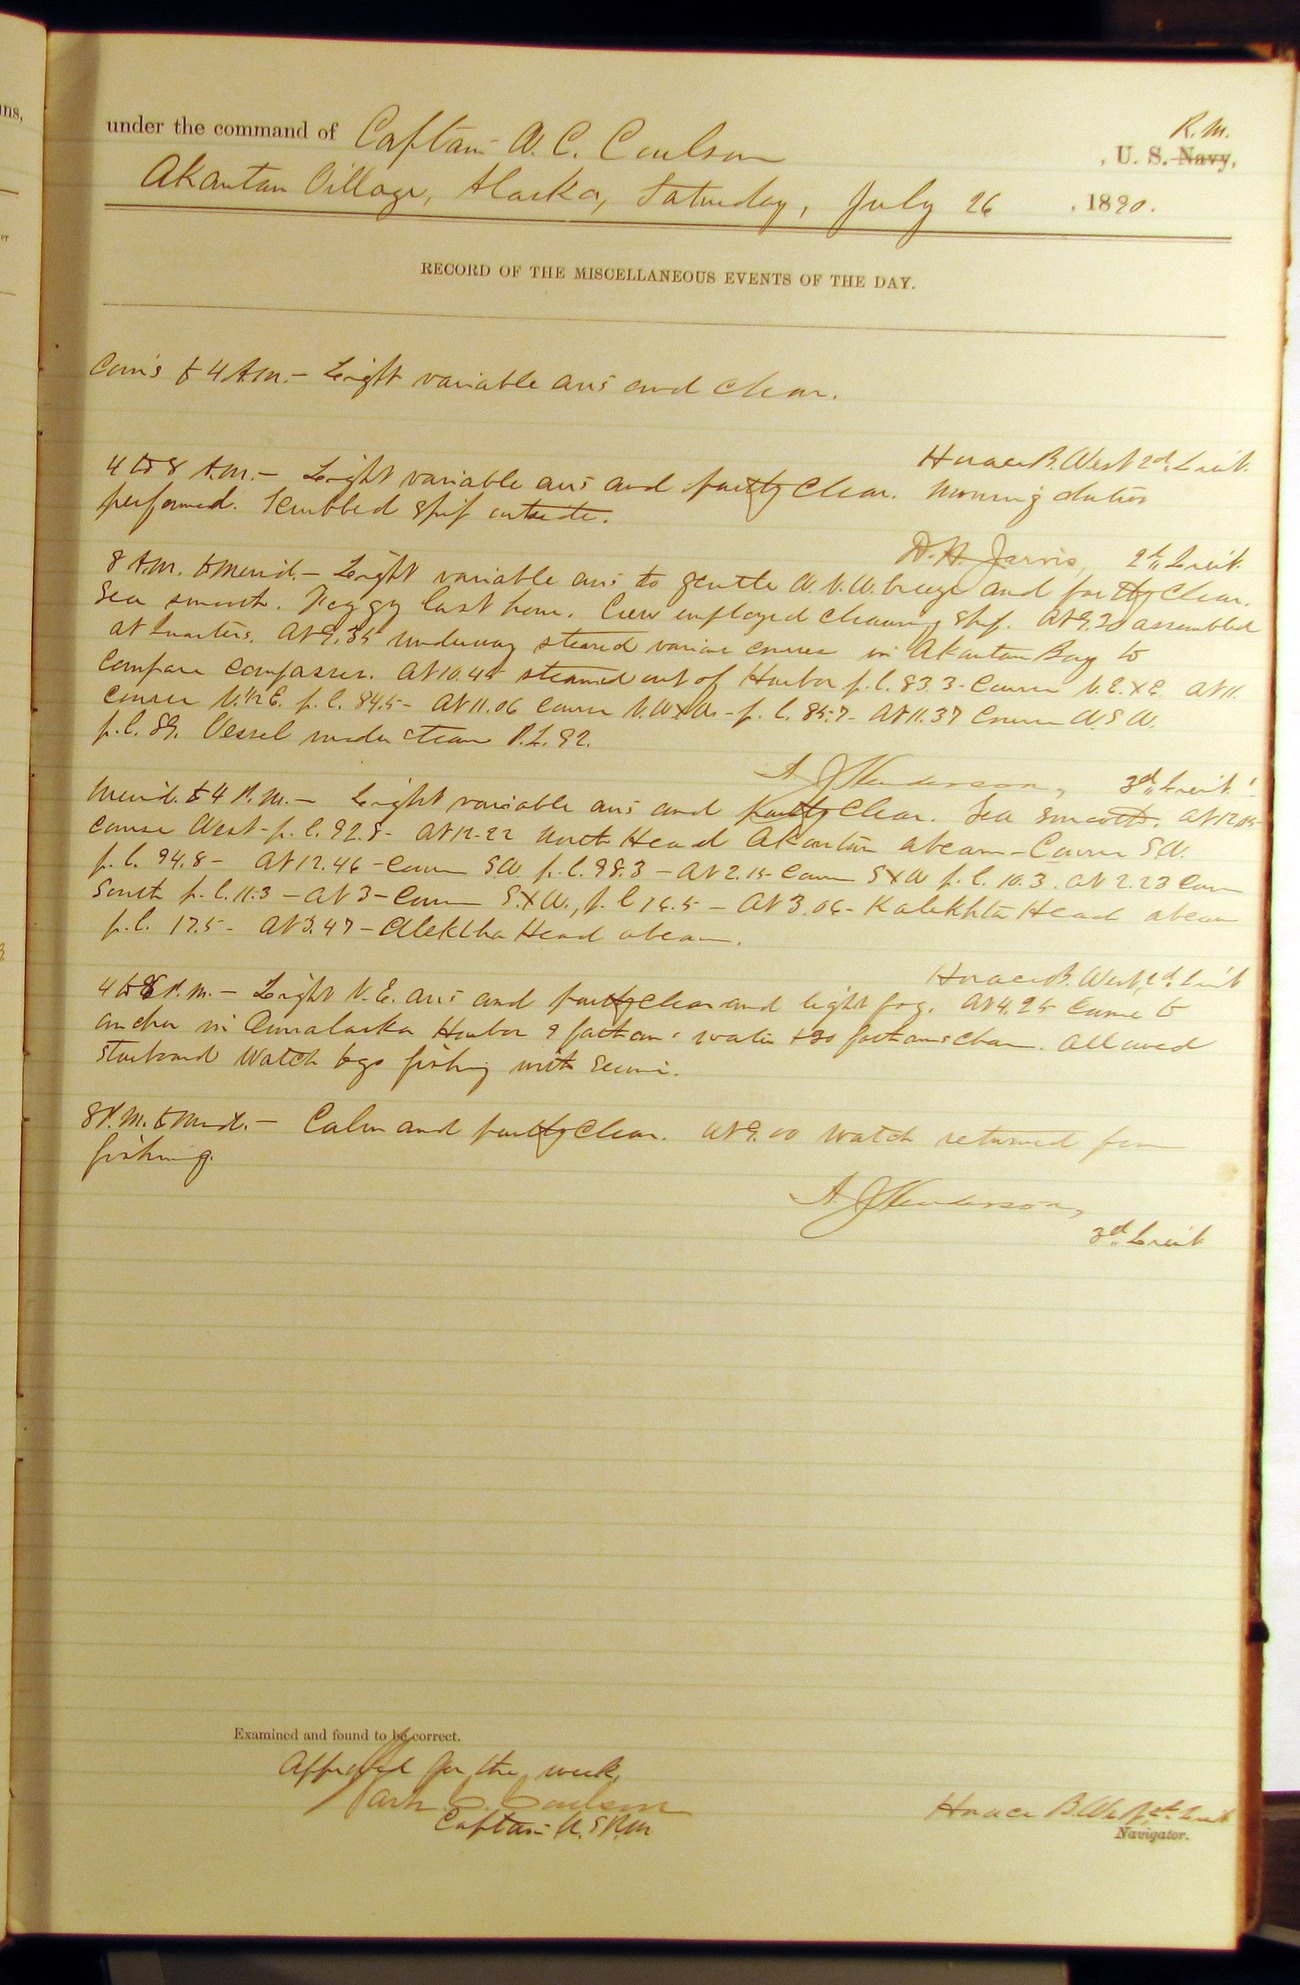 ins,
er
R. M.
under the command of Captain W. C. Coulson , U. S. Navy,
Akantan Village, Alaska, Saturday, July 26 , 1890.
RECORD OF THE MISCELLANEOUS EVENTS OF THE DAY.
Com's to 4 A.m. – Light variable airs and clear.
Horace B. West 2d Lieut.
4 to 8 A.m. – Light variable airs and partly clear. Morning duties
performed. Scrubbed ship outside.
D. H. Jarvis, 2d Lieut.
8 A.m. to merid. – Light variable airs to gentle W.N.W. breeze and partly clear.
Sea smooth. Foggy last hour. Crew employed cleaning ship. At 9.30 assembled
at Quarters. At 9.35 underway steamed various courses in Akantan Bay to
compare compasses. At 10.45 steamed out of Harbor p.l. 83.3 - Course N.E. x E. At 11.
course N. 1/2 E. p.l. 84.5 - At 11.06 course N.W x W. - p.l. 85.7 - At 11.37 Course W.S.W.
p.l. 89. Vessel under steam P.L. 92.
A. J. Henderson, 3d Lieut.
Merid. to 4 P.M. – Light variable airs and partly clear. Sea smooth. At 12.05
course West - p.l. 92.5 - At 12-22 North Head Akantan abeam - Course S.W.
p.l. 94.8 - At 12.46 - course SW p.l. 98.3 - At 2.15 - Course S x W p.l. 10.3. At 2.23 Course
South p.l. 11.3 - At 3 - Course S. x W., p.l 16.5 - At 3.06 - Kalekhta Head abeam
p.l. 17.5 - At 3.47 - Alektha Head abeam.
Horace B. West, 2d Lieut
4 to 8 P.m. – Light N.E. airs and partly clear and light fog. At 4.25 came to
anchor in Ounalaska Harbor 9 fathoms water & 30 fathoms chain. Allowed
starboard watch to go fishing with seine.
8 P.M. to Mid. – Calm and partly clear. At 9.00 watch returned from
fishing.
A. J. Henderson,
3d Lieut
Examined and found to be correct.
Approved for the week,
W. C. Coulson
Captain U.S.R.M
Horace B. West, 2d Lieut
Navigator.